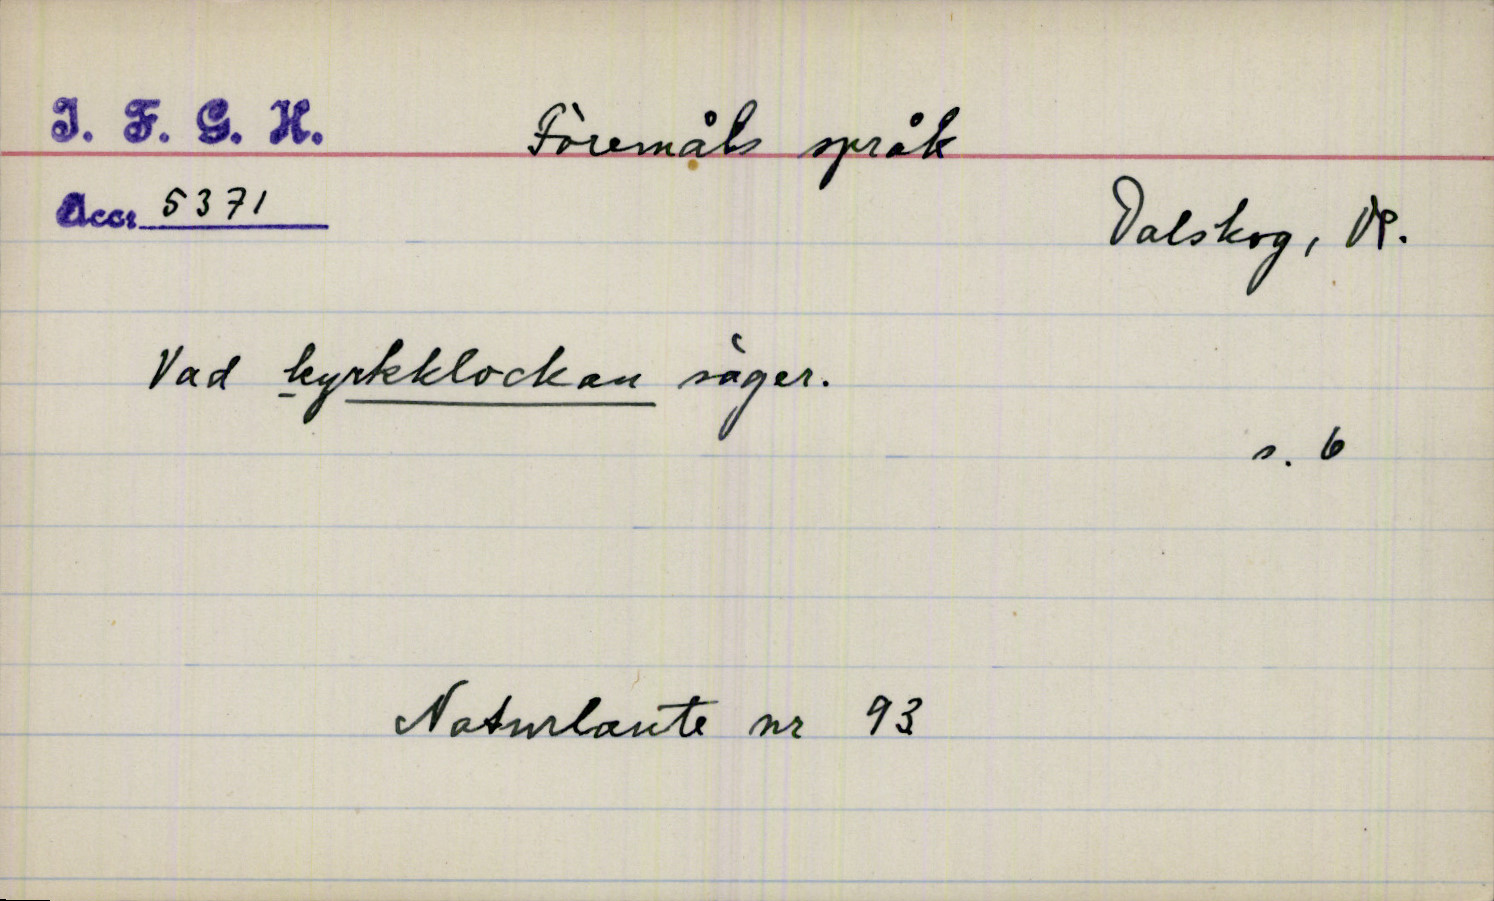 I. F. G. H.
Föremåls språk
Accr 5371
Dalskog, Dl.
Vad kyrkklockan säger.
s. 6
Naturlaute nr 93